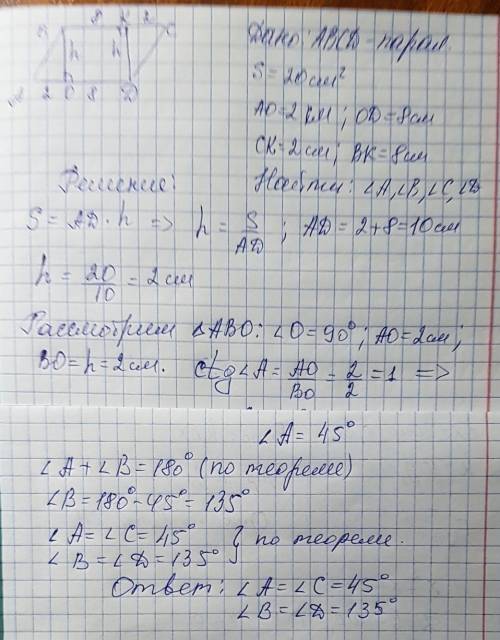 B 8 K 2 C
h h
A 2 O 8 D
Дано: ABCD - парал.
S = 20 см²
AO = 2 см; OD = 8 см
CK = 2 см; BK = 8 см
Решение:
Найти: ∠A, ∠B, ∠C, ∠D
S = AD · h => h = S/AD; AD = 2+8 = 10 см
h = 20/10 = 2 см
Рассмотрим ∠ABO: ∠O = 90°; AO = 2 см;
BO = h = 2 см. ctg∠A = AO/BO = 2/2 = 1 =>
∠A = 45°
∠A + ∠B = 180° (по теореме)
∠B = 180° - 45° = 135°
∠A = ∠C = 45°
∠B = ∠D = 135° } по теореме.
Ответ: ∠A = ∠C = 45°
∠B = ∠D = 135°